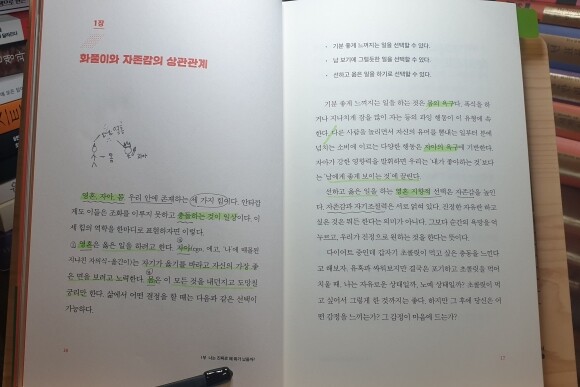 1장
화풀이와 자존감의 상관관계
영혼, 자아, 몸. 우리 안에 존재하는 세 가지 힘이다. 안타깝
게도 이들은 조화를 이루지 못하고 충돌하는 것이 일상이다. 이
세 힘의 역학을 한마디로 표현하자면 이렇다.
영혼은 옳은 일을 하려고 한다. 자아(ego, 에고, '나'에 매몰된
지나친 자의식-옮긴이)는 자기가 옳기를 바라고 자신의 가장 좋
은 면을 보려고 노력한다. 몸은 이 모든 것을 내던지고 도망칠
궁리만 한다. 삶에서 어떤 결정을 할 때는 다음과 같은 선택이
가능하다.
16
• 기분 좋게 느껴지는 일을 선택할 수 있다.
• 남 보기에 그럴듯한 일을 선택할 수 있다.
• 선하고 옳은 일을 하기로 선택할 수 있다.
기분 좋게 느껴지는 일을 하는 것은 몸의 욕구다. 폭식을 하
거나 지나치게 잠을 많이 자는 등의 과잉 행동이 이 유형에 속
한다. 다른 사람을 놀리면서 자신의 유머를 뽐내는 일부터 분에
넘치는 소비에 이르는 다양한 행동은 자아의 욕구에 기반한다.
자아가 강한 영향력을 발휘하면 우리는 '내가 좋아하는 것'보다
는 '남에게 좋게 보이는 것'에 끌린다.
선하고 옳은 일을 하는 영혼 지향적 선택은 자존감을 높인
다. 자존감과 자기조절력은 서로 얽혀 있다. 진정한 자유란 하고
싶은 것은 뭐든 한다는 의미가 아니다. 그보다 순간의 욕망을 억
누르고, 우리가 진정으로 원하는 것을 한다는 뜻이다.
다이어트 중인데 갑자기 초콜릿이 먹고 싶은 충동을 느낀다
고 해보자. 유혹과 싸워보지만 결국은 포기하고 초콜릿을 먹어
치웠을 때, 나는 자유로운 상태일까, 노예 상태일까? 초콜릿이 먹
고 싶어서 그렇게 한 것까지는 좋다. 하지만 그 후에 당신은 어
떤 감정을 느끼는가? 그 감정이 마음에 드는가?
17